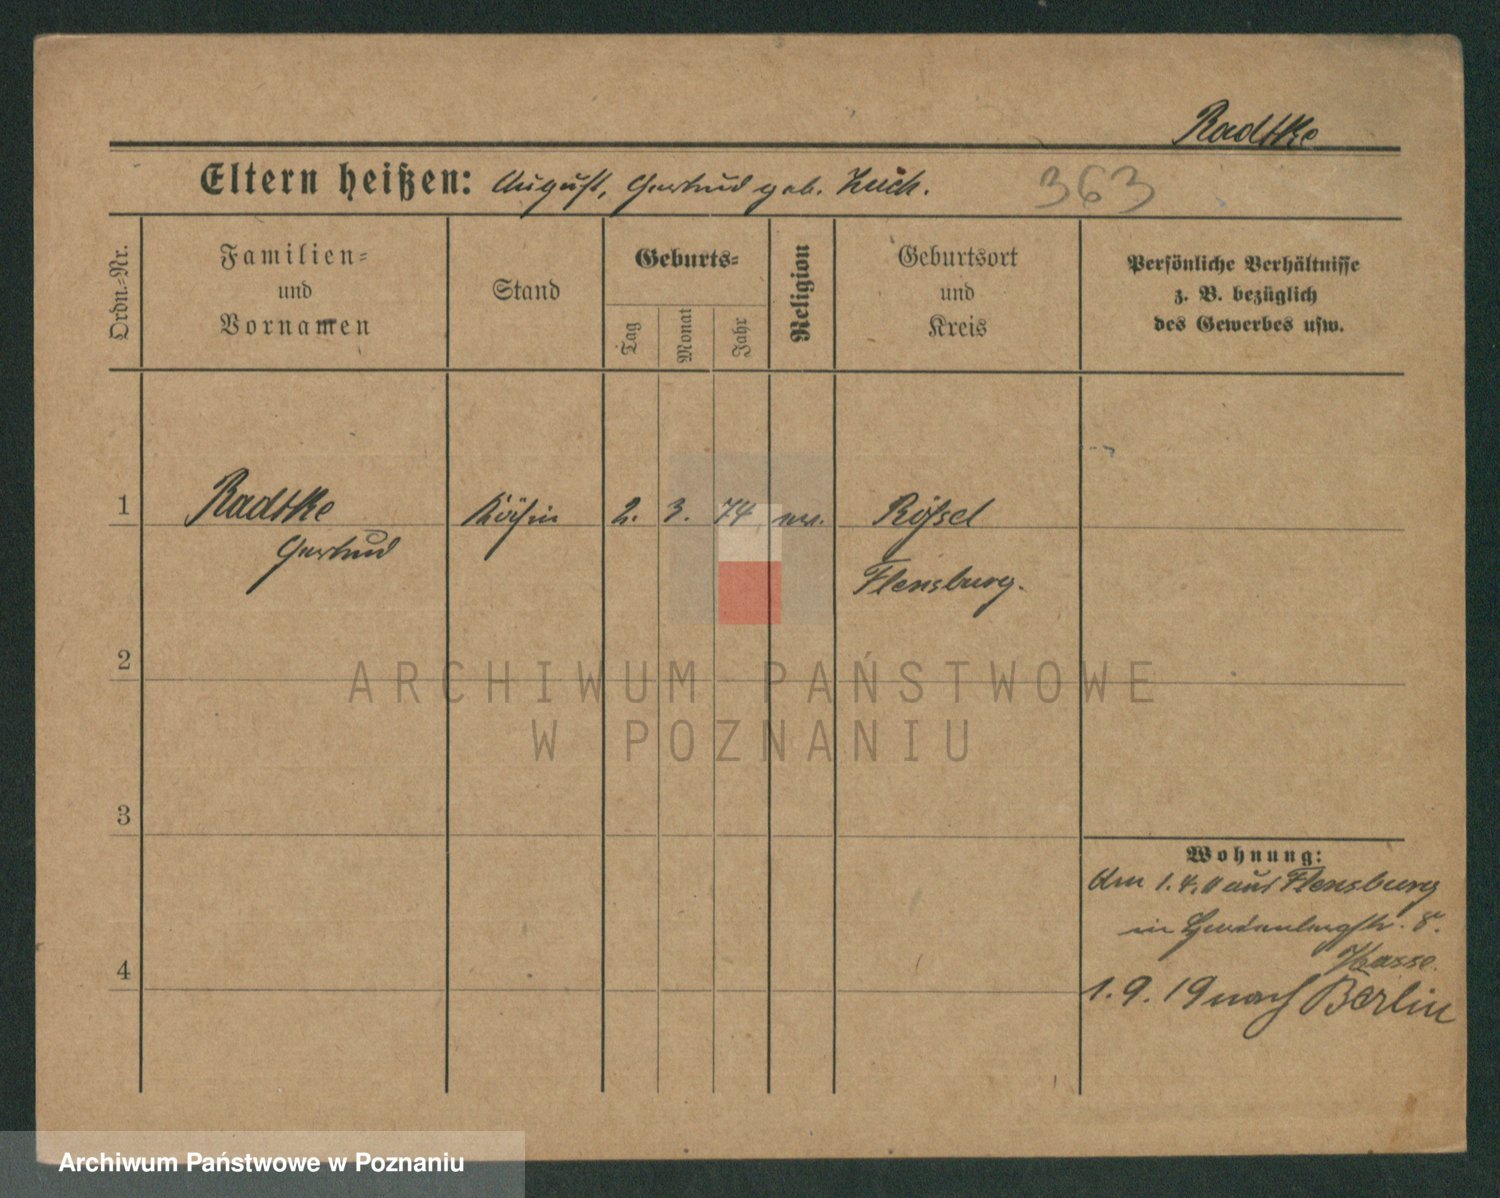 Radtke
Eltern heißen: August, Gertrud geb. 363
Ordn.=Nr.
Familien=
und
Vornamen
Stand
Geburts=
Tag
Monat
Jahr
Religion
Geburtsort
und
Kreis
Persönliche Verhältnisse
z. B. bezüglich
des Gewerbes usw.
1 Radtke Köchin 2. 3. 74 ev. Rößel
Gertrud Flensburg.
2
ARCHIWUM PAŃSTWOWE
W POZNANIU
3
Wohnung:
Am 1.4. aus Flensburg
in 8.
4
1.9.19 nach Berlin
Archiwum Państwowe w Poznaniu